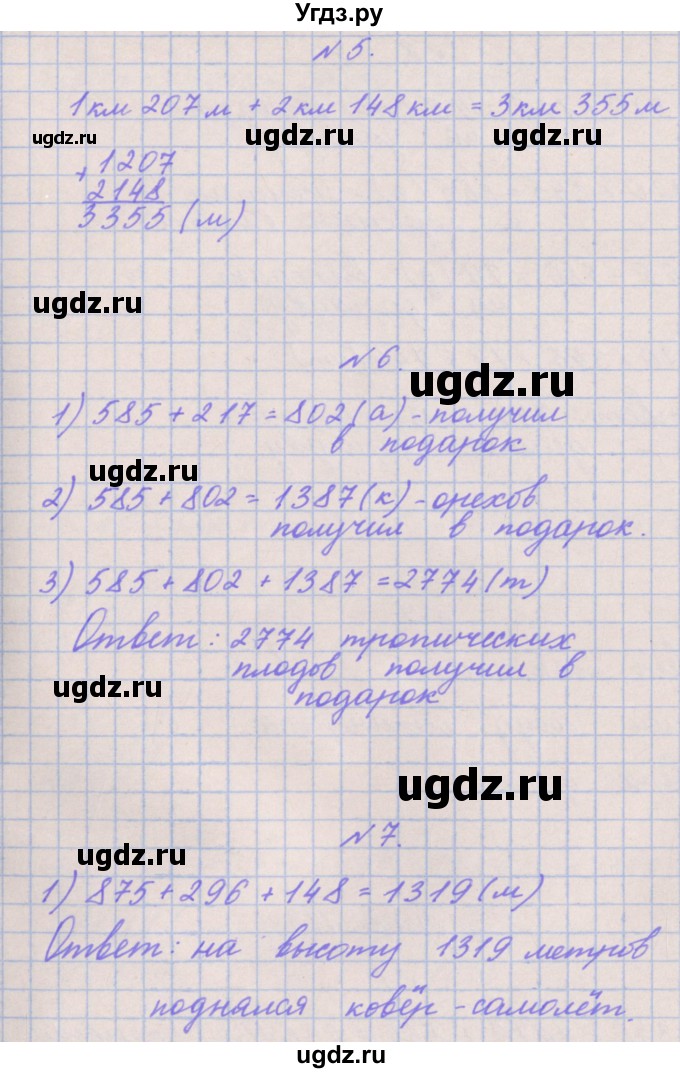 Угдз.ру
№ 5.
1 км 207 м + 2 км 148 км = 3 км 355 м
ugdz.ru ugdz.ru ugdz.ru
+ 1207
2148
3355 (м)
ugdz.ru
№ 6.
ugdz.ru
1) 585 + 217 = 802 (а) - получил
в подарок
ugdz.ru
2) 585 + 802 = 1387 (к) - орехов
получил в подарок.
3) 585 + 802 + 1387 = 2774 (т)
Ответ: 2774 тропических
плодов получил в
ugdz.ru
подарок
ugdz.ru
№ 7.
ugdz.ru
1) 875 + 296 + 148 = 1319 (м)
Ответ: на высоту 1319 метров
поднялся ковёр - самолёт.
ugdz.ru